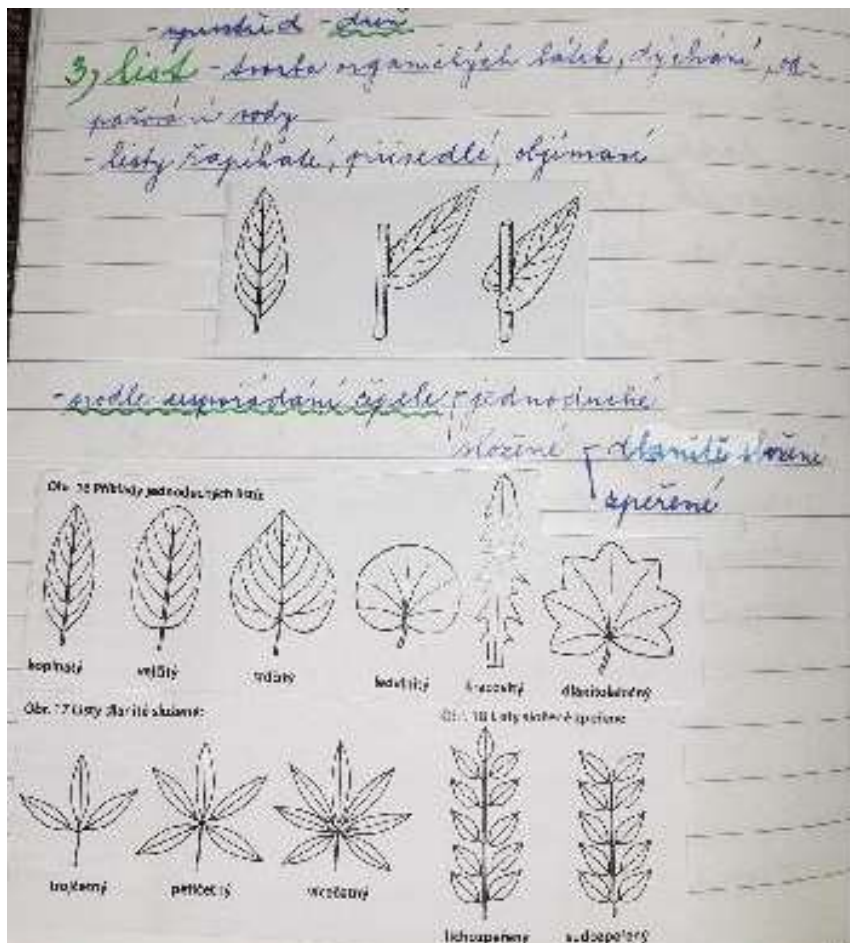 - uprostřed - dřeň
3) list - tvorba organických látek, dýchání, od-
pařování vody
- listy řapíkaté, přisedlé, objímavé
- podle uspořádání čepele - jednoduché
složené - dlanitě složené
zpeřené
Obr. 16 Příklady jednoduchých listů:
kopinatý vejčitý srdčitý ledvinitý kracovitý dlanitolaločný
Obr. 17 Listy dlanitě složené:
Obr. 18 Listy složené zpeřené:
trojčetný pětičetný vícečetný
lichozpeřený sudozpeřený